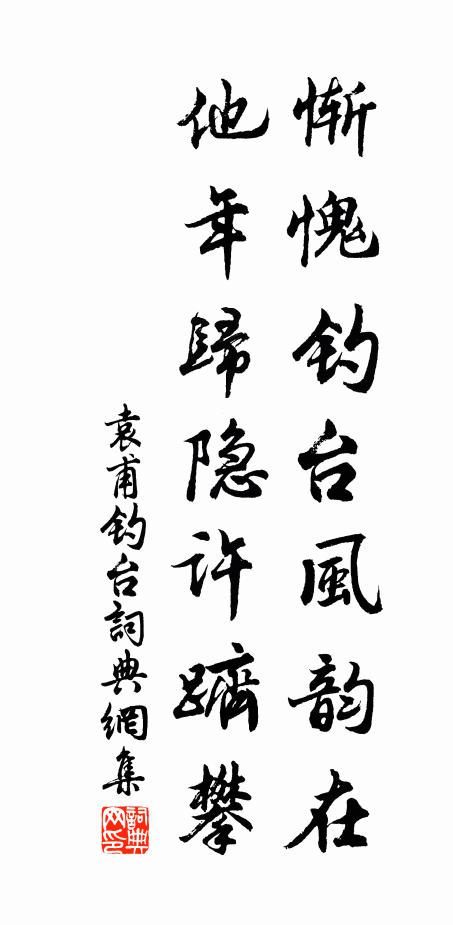 惭愧钓台風韵在
他年歸隐许躋攀
袁甫钓台詞典網集
詞典网印